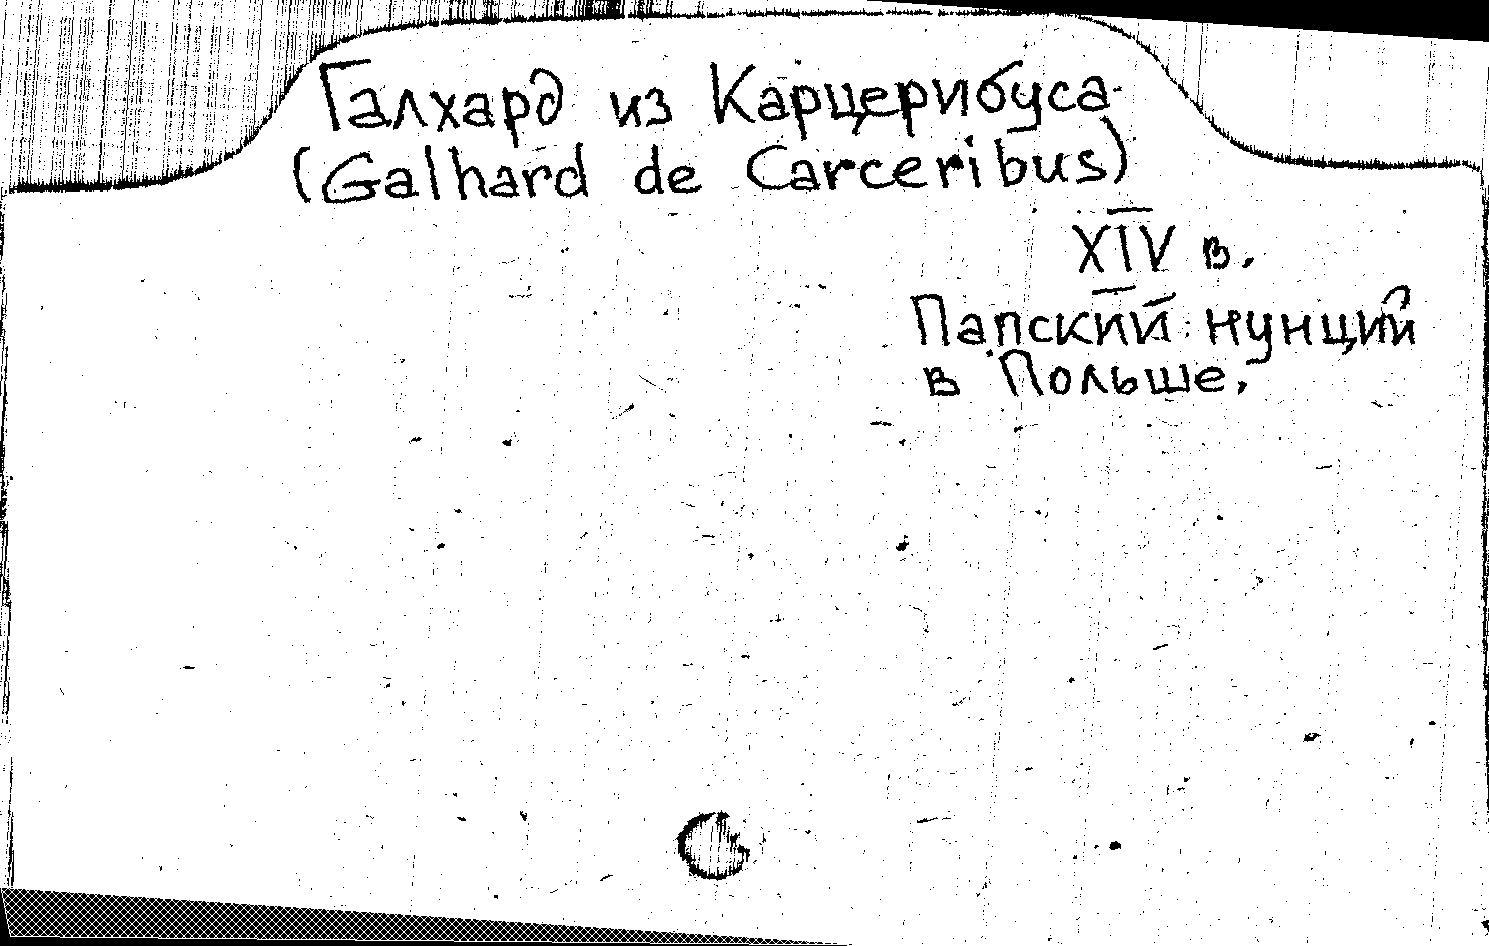 Галхард из Карцерибуса
(Galhard de Carceribus)
XIV в.
Папский нунций
в Польше.